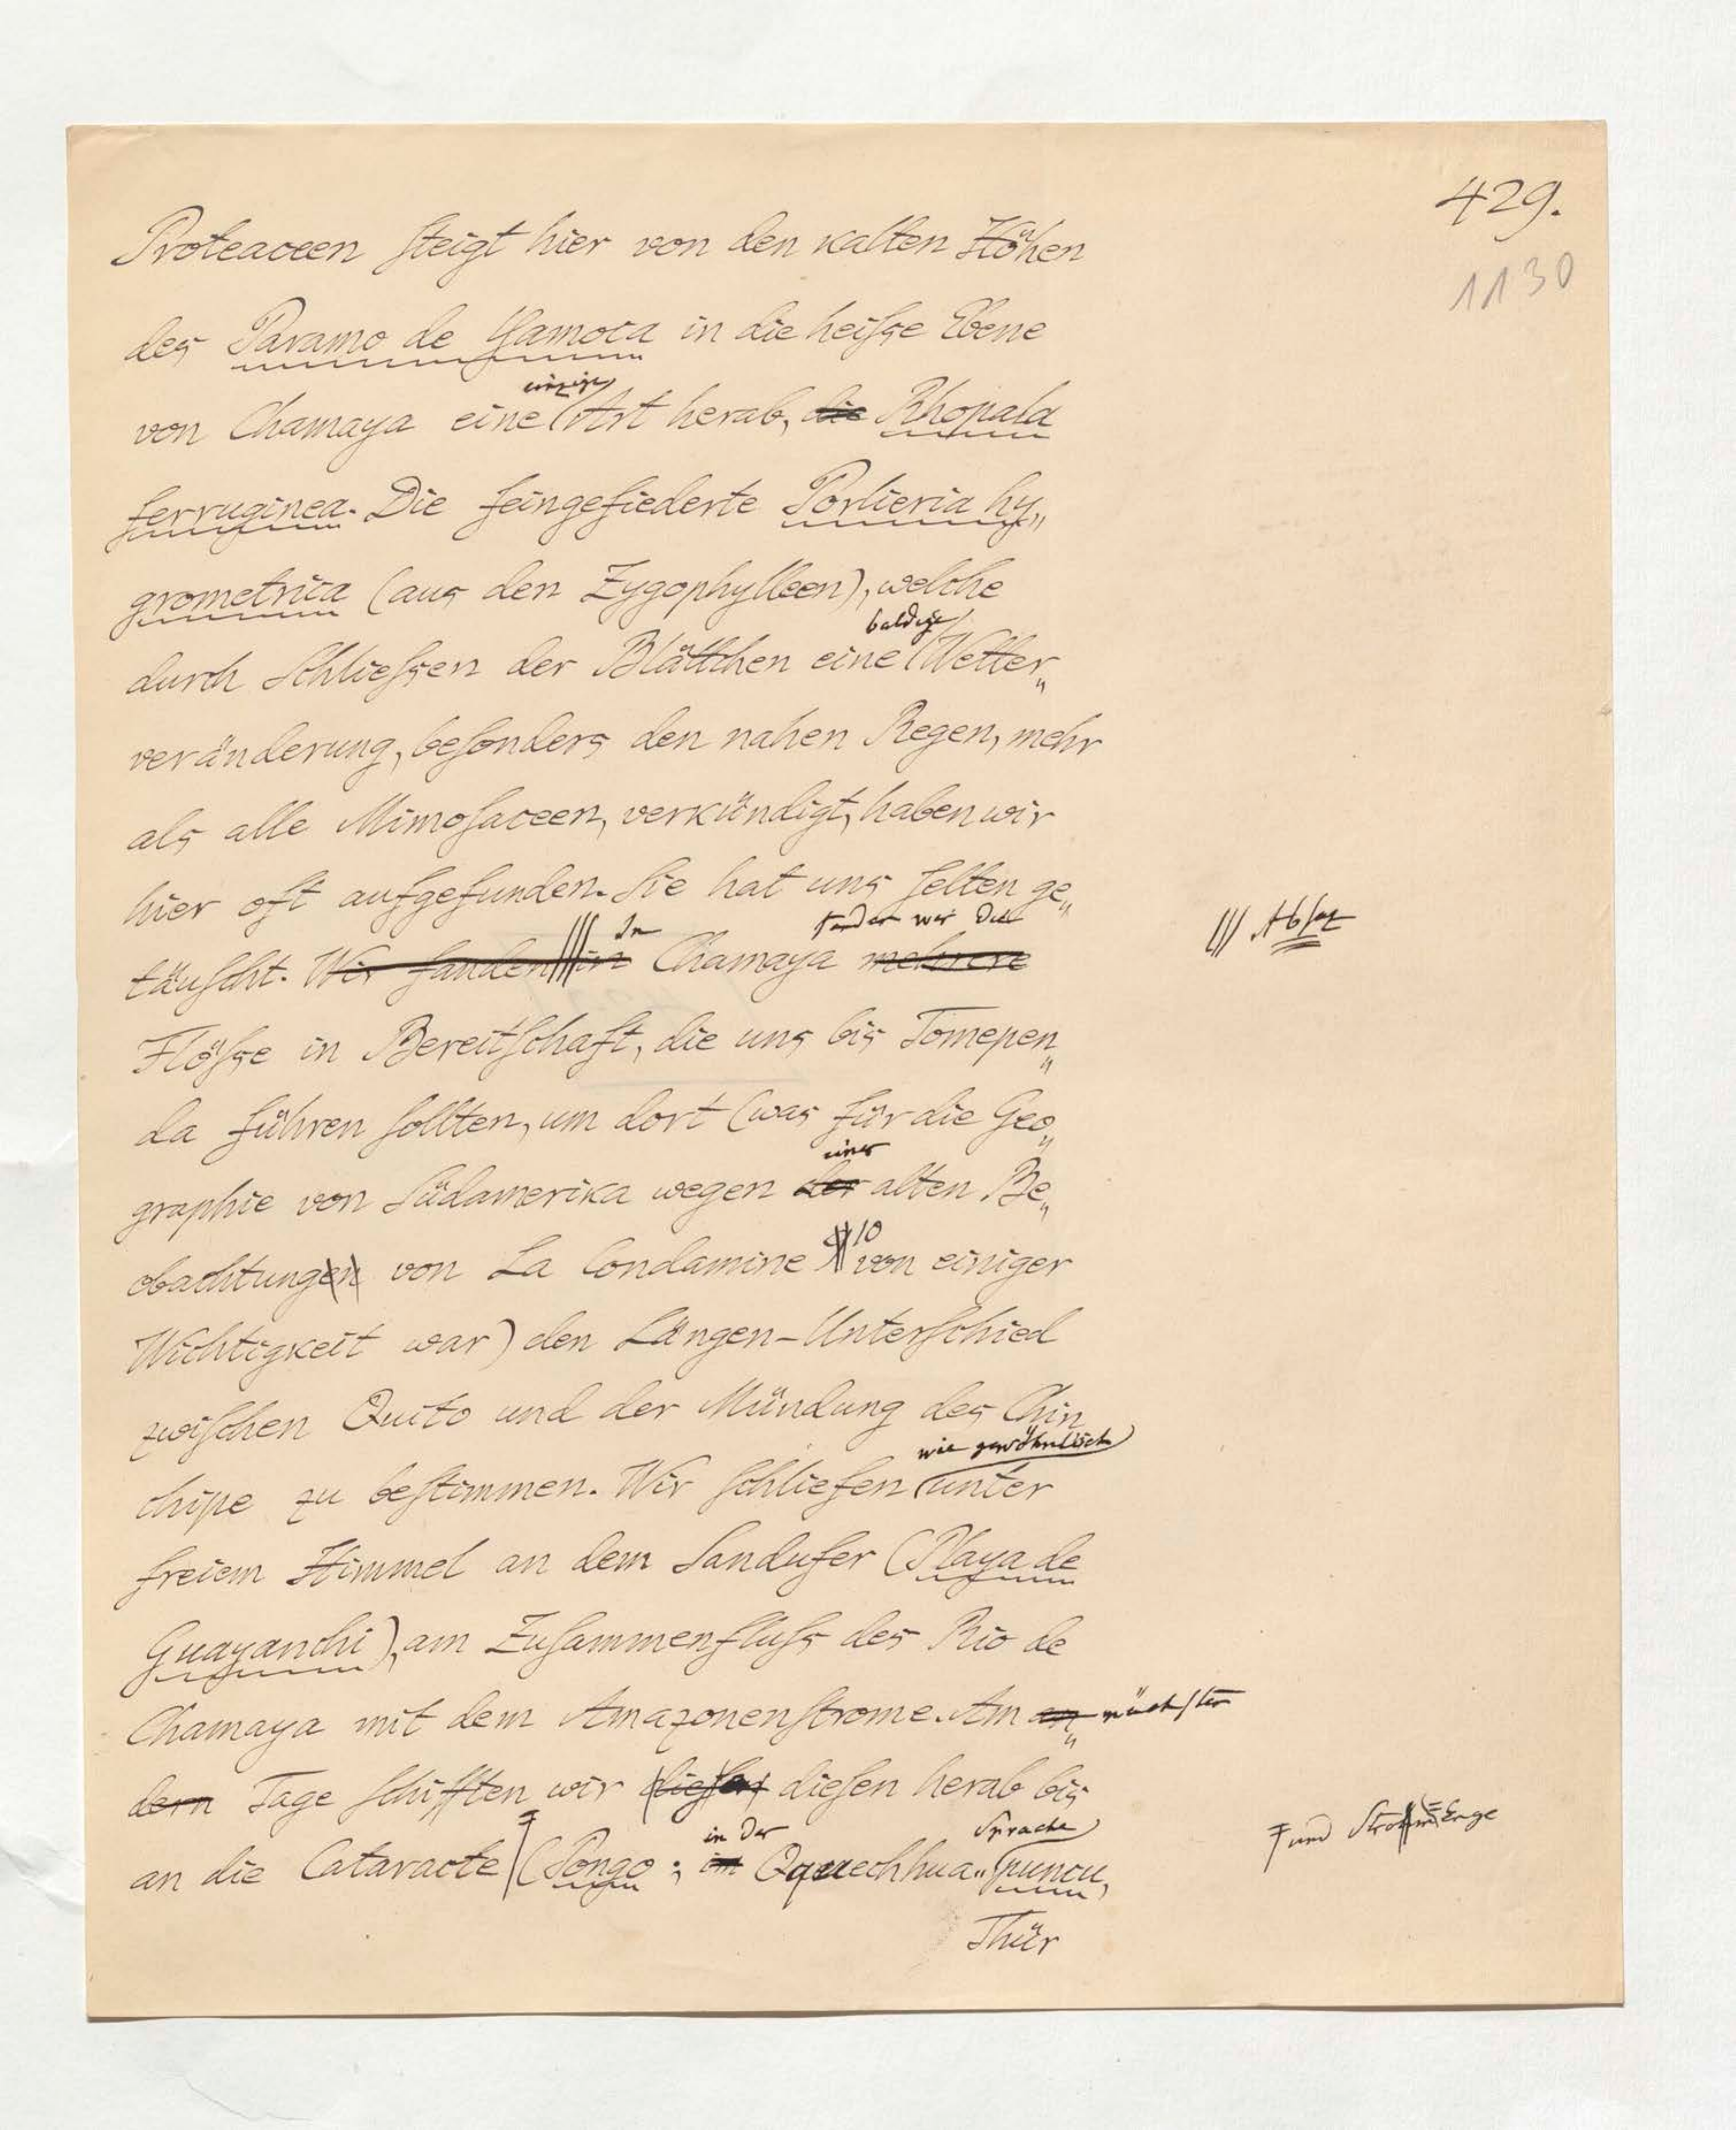 429.
1130
Proteaceen ſteigt hier von den kalten Höhen
des Paramo de Yamoca in die heiſse Ebene
einzige
von Chamaya eine Art herab, die Rhopala
ferruginea. Die feingefiederte Porlieria hy„
grometrica (aus den Zygophylleen), welche
baldige
durch Schlieſsen der Blättchen eine Wetter„
veränderung, beſonders den nahen Regen, mehr
als alle Mimoſaceen, verkündigt, haben wir
hier oft aufgefunden. Sie hat uns ſelten ge„
In fanden wir die
täuſcht. Wir fanden in Chamaya mehrere
||| Abſatz
Flöſse in Bereitſchaft, die uns bis Tomepen„
da führen ſollten, um dort (was für die Geo„
einer
graphie von Südamerika wegen der alten Be„
10
obachtungen von La Condamine von einiger
Wichtigkeit war) den Längen-Unterſchied
zwiſchen Quito und der Mündung des Chin
wie gewöhnlich
chipe zu beſtimmen. Wir ſchliefen unter
freiem Himmel an dem Sandufer (Playa de
Guayanchi), am Zuſammenfluſs des Rio de
Chamaya mit dem Amazonenſtrome. Am an„ nächſten
dern Tage ſchifften wir dieſen dieſen herab bis
in der Sprache
an die Cataracte (Pongo; im Qquechhua„ puncu,
und Strom-Enge
Thür